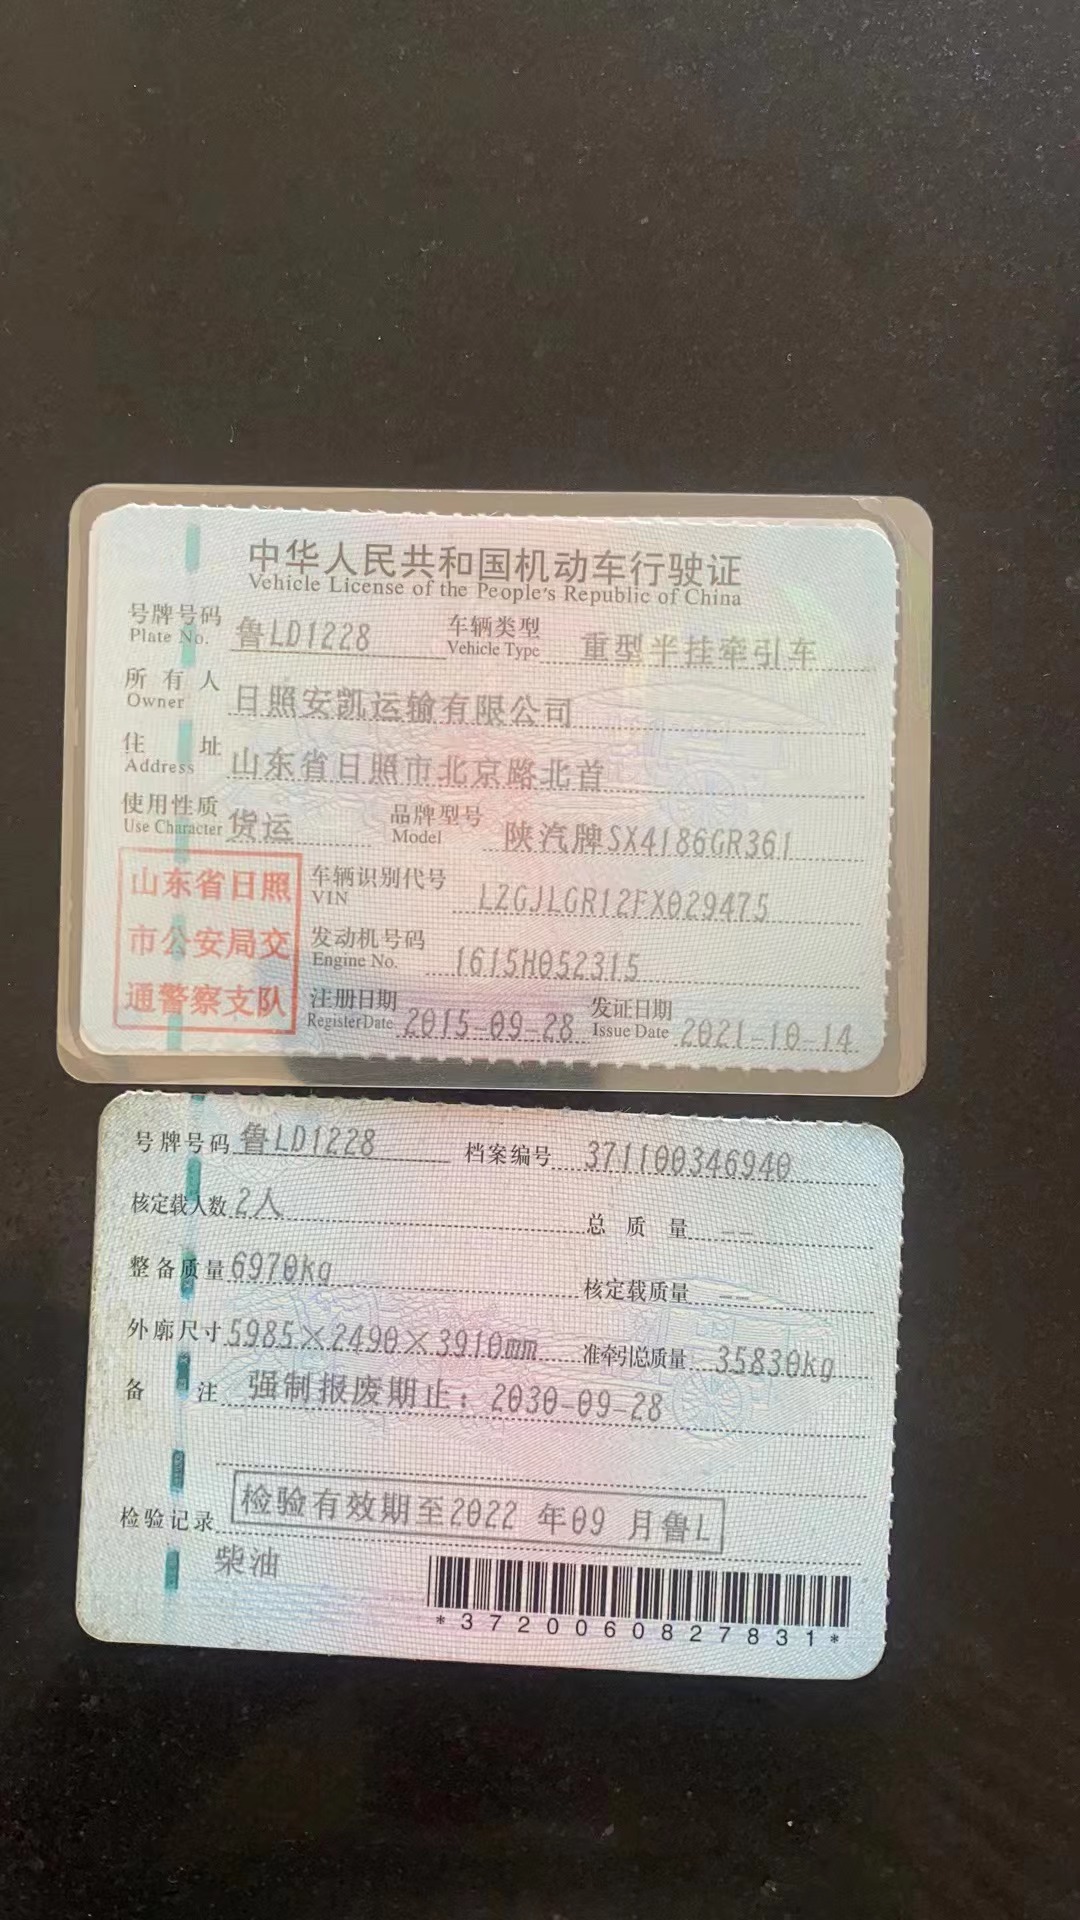 中华人民共和国机动车行驶证
Vehicle License of the People's Republic of China
号牌号码 鲁LD1228 车辆类型 重型半挂牵引车
Plate No. Vehicle Type
所有人 日照安凯运输有限公司
Owner
住址 山东省日照市北京路北首
Address
使用性质 货运 品牌型号 陕汽牌SX4186GR361
Use Character Model
山东省日照
市公安局交
通警察支队
车辆识别代号 LZGJLGR12FX029475
VIN
发动机号码 1615H052315
Engine No.
注册日期 2015-09-28 发证日期 2021-10-14
Register Date Issue Date
号牌号码 鲁LD1228 档案编号 371100346940
核定载人数 2人 总质量 --
整备质量 6970kg 核定载质量 --
外廓尺寸 5985×2490×3910mm 准牵引总质量 35830kg
备注 强制报废期止：2030-09-28
检验记录 检验有效期至2022 年09 月鲁L
柴油
*3720060827831*